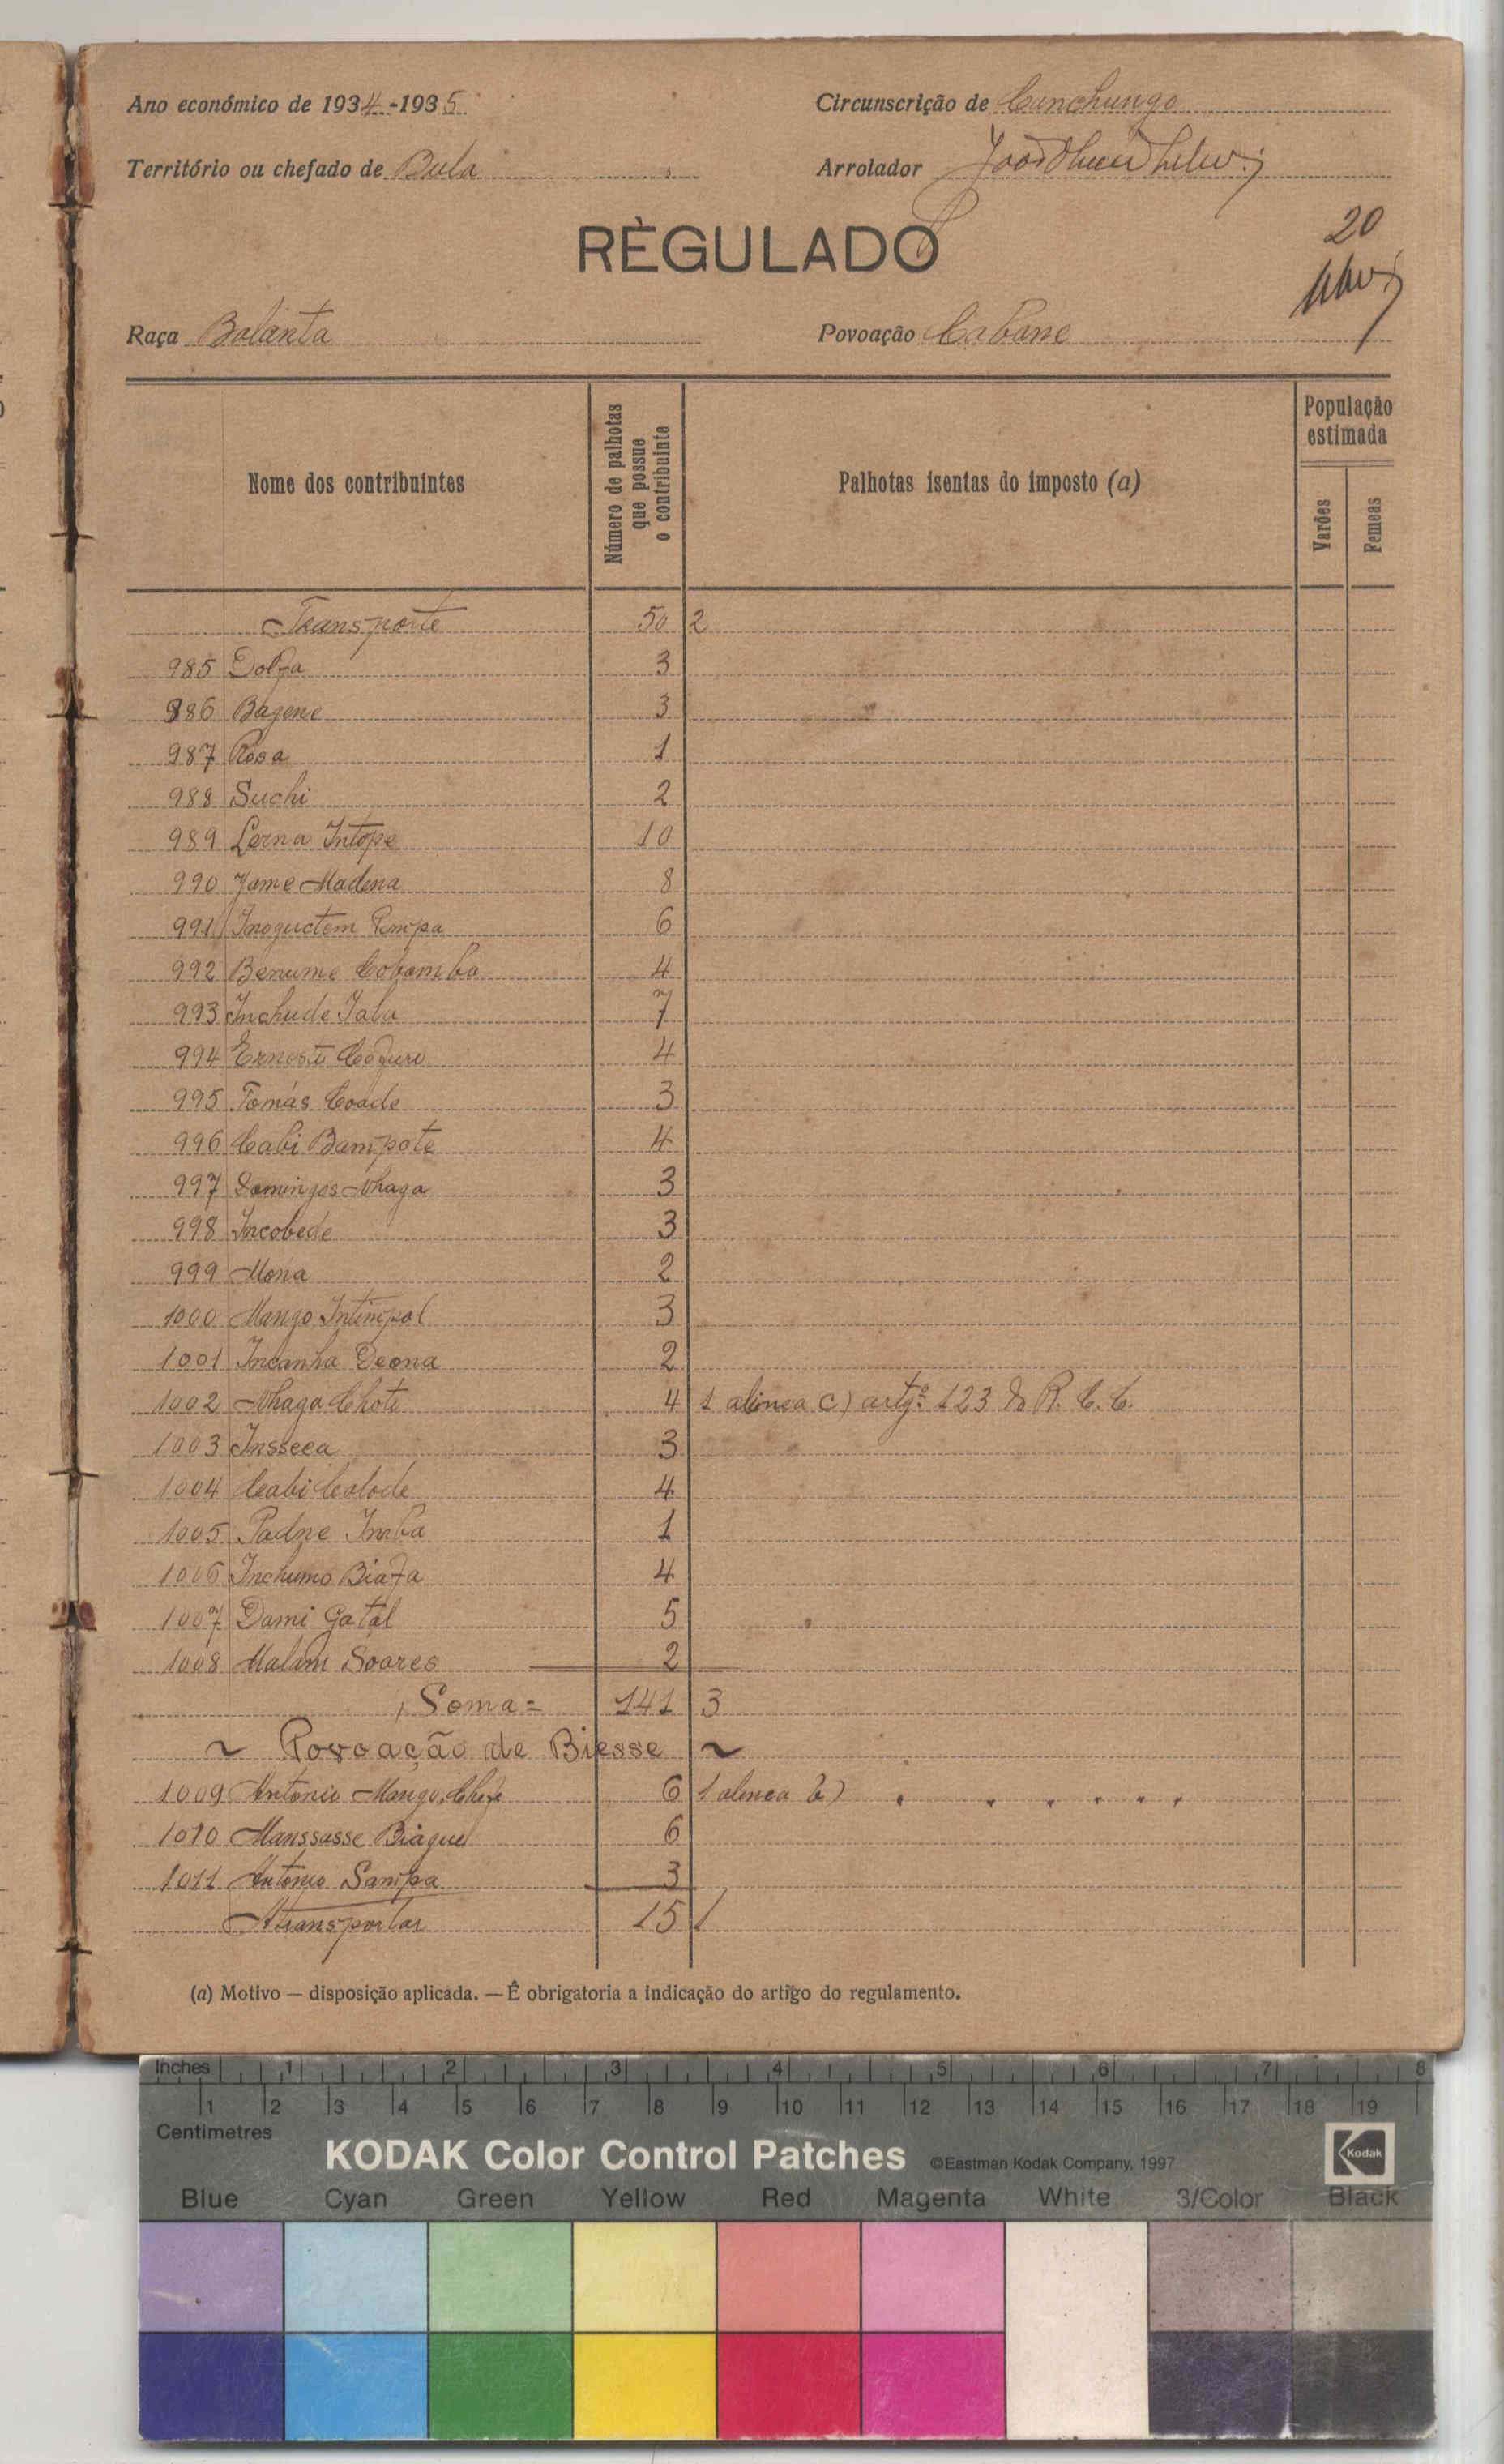 Ano económico de 1934-1935
Circunscrição de Canchungo
Território ou chefado de Bula
Arrolador
RÈGULADO
20
Raça Balanta
Povoação Cabane
Nome dos contribuintes
Número de palhotas que possue o contribuinte
Palhotas isentas do imposto (a)
População estimada
Varões
Femeas
Transporte 50 2
985 Dolfa 3
986 Bagene 3
987 Rosa 1
988 Suchi 2
989 Lerna Intope 10
990 Jame Madena 8
991 Inoguctem Pempa 6
992 Benume Cobomba 4
993 Inchude Iala 7
994 Ernesto 4
995 Tomás Coade 3
996 Cabi Bampote 4
997 Domingos Nhaga 3
998 Incobede 3
999 Mona 2
1000 Mango Intimpol 3
1001 Incanha Deona 2
1002 Nhaga Chote 4 1 alinea c) artgº 123 do R. C. C.
1003 Insseca 3
1004 Cabi Calode 4
1005 Padre Imba 1
1006 Inchumo Biafa 4
1007 Dami Gatal 5
1008 Malam Soares 2
Soma = 141 3
~ Povoação de Biesse ~
1009 Antonio Mango, Chefe 6 1 alinea b) " " " " " "
1010 Manssasse Biague 6
1011 Antonio Sampa 3
A transportar 15 1
(a) Motivo — disposição aplicada. — É obrigatoria a indicação do artigo do regulamento.
Inches 1 2 3 4 5 6 7 8
1 2 3 4 5 6 7 8 9 10 11 12 13 14 15 16 17 18 19
Centimetres
KODAK Color Control Patches ©Eastman Kodak Company, 1997 Kodak
Blue Cyan Green Yellow Red Magenta White 3/Color Black